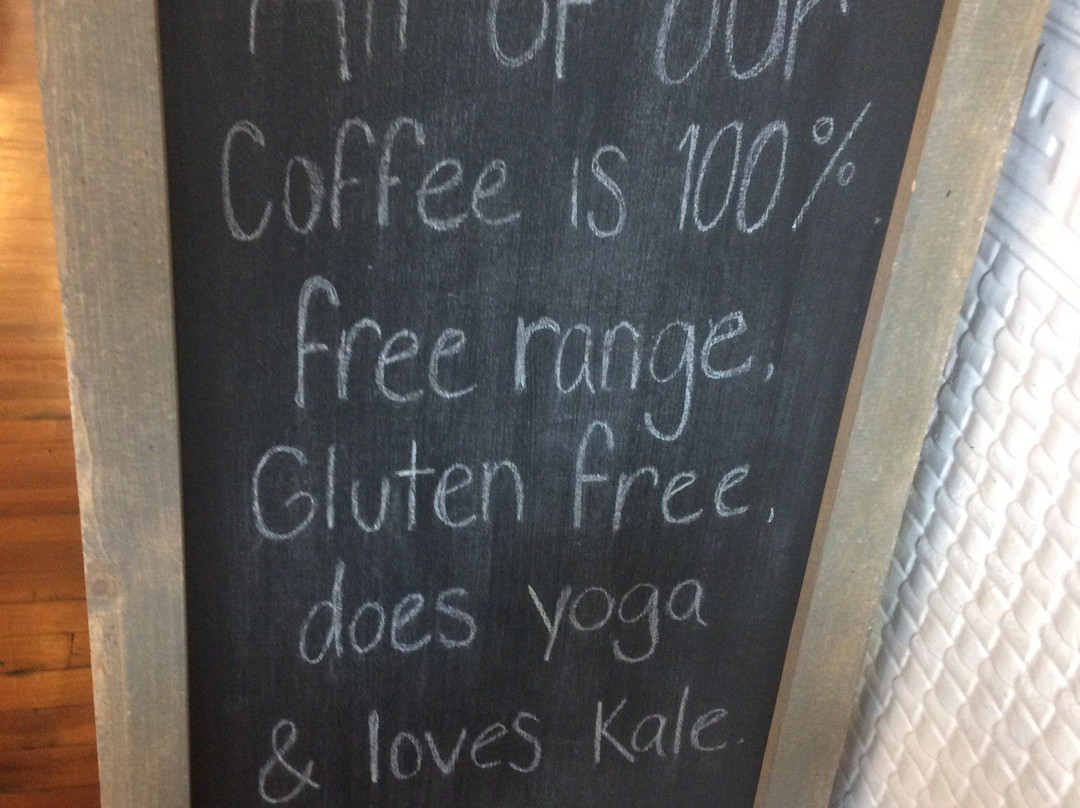 All of our
Coffee is 100%
free range,
Gluten free,
does yoga
& loves Kale.